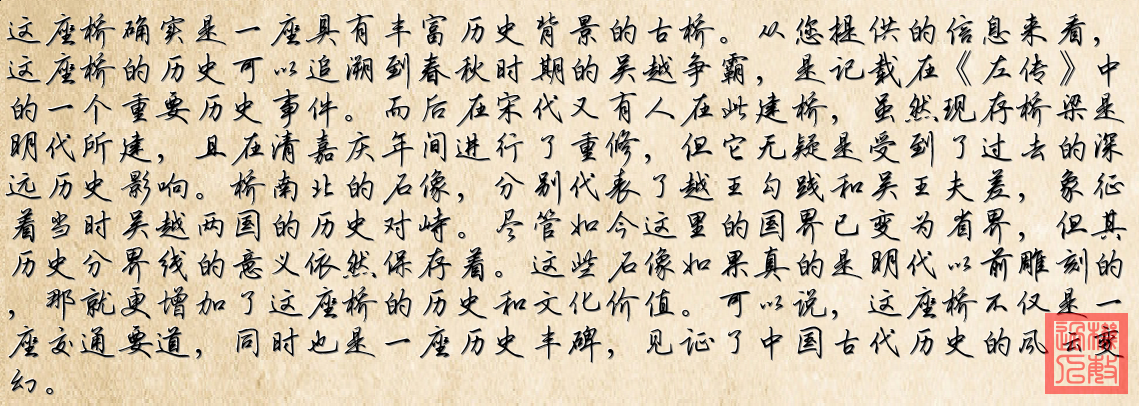 这座桥确实是一座具有丰富历史背景的古桥。从您提供的信息来看，
这座桥的历史可以追溯到春秋时期的吴越争霸，是记载在《左传》中
的一个重要历史事件。而后在宋代又有人在此建桥，虽然现存桥梁是
明代所建，且在清嘉庆年间进行了重修，但它无疑是受到了过去的深
远历史影响。桥南北的石像，分别代表了越王勾践和吴王夫差，象征
着当时吴越两国的历史对峙。尽管如今这里的国界已变为省界，但其
历史分界线的意义依然保存着。这些石像如果真的是明代以前雕刻的
，那就更增加了这座桥的历史和文化价值。可以说，这座桥不仅是一
座交通要道，同时也是一座历史丰碑，见证了中国古代历史的风云变
幻。